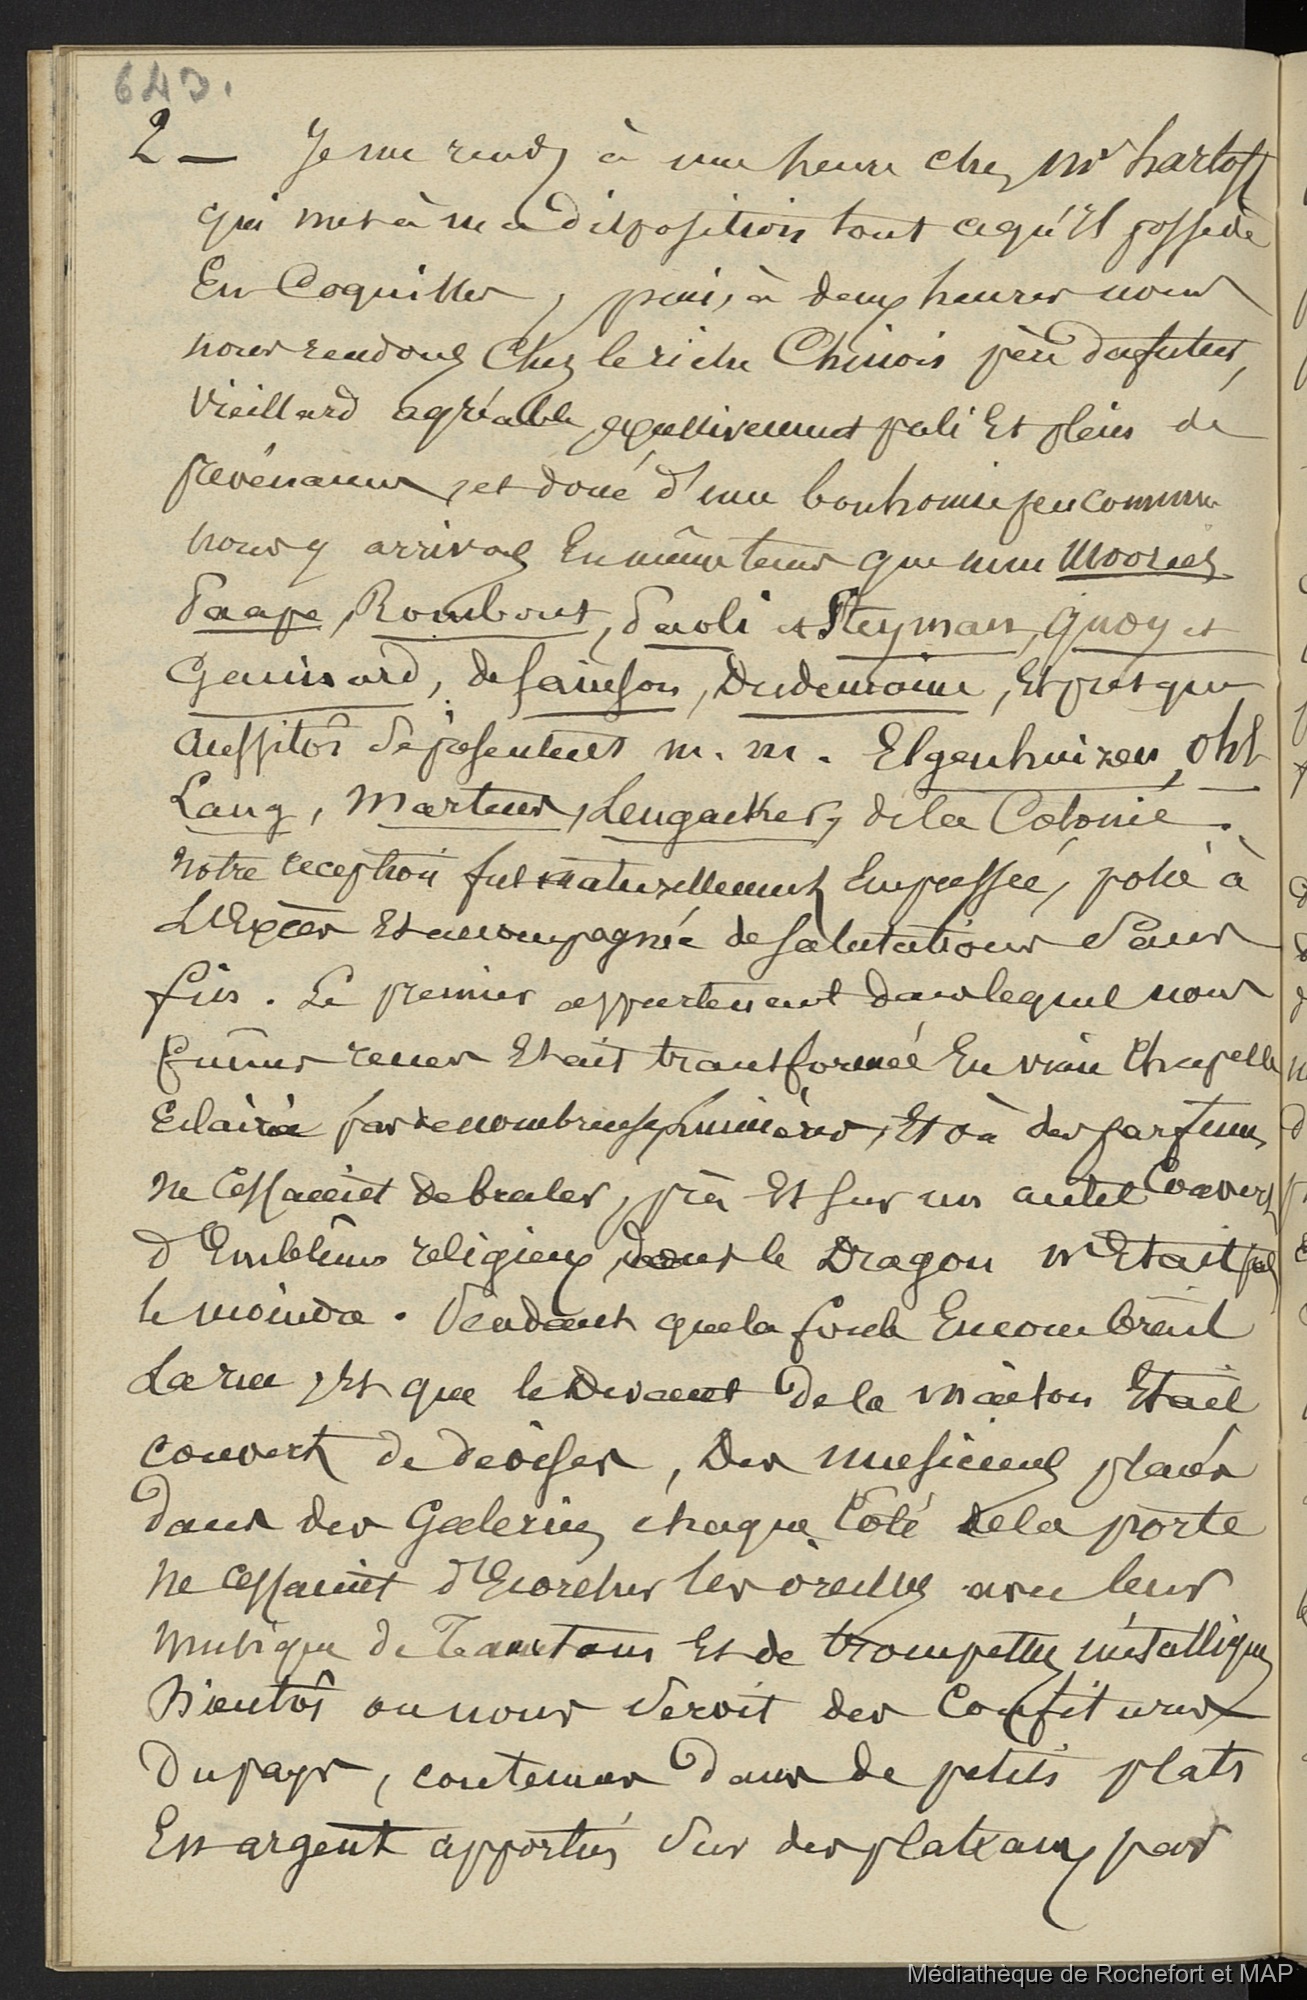 643.
2 — Je me rends à une heure chez Mr hartoff
qui met à ma disposition tout ce qu'il possede
En Coquilles, puis, à deux heures nous
nous rendons Chez le riche Chinois père du futur,
Vieillard agréable, excessivement poli Et plein de
prevénances, et doué d'une bonhomie peu commune
nous y arrivons En même tems que mm Moorrees
Paape, Rombout, Paoli et Steyman, Quoy et
Gaimard, de Sainson, Dudemaine, Et presque
Aussitôt se présentent m. m. Elgenhuizen, Ohl
Lang, Martens, Lengacker, de la Colonie.
Notre reception fut naturellement Empressée, polie à
L'Excès Et accompagnée de salutations Sans
fin. Le premier appartement dans lequel nous
fumes recues Etait transformée En vraie Chapelle
Eclairée par de nombreuses lumières, Et où des parfums
ne cessaient de bruler, près Et sur un autel Couvert
d'Emblêmes religieux, dont le Dragon n'Etait pas
le moindre. Pendant que la foule Encombrait
La rue, Et que le Devant de la maison Etait
couvert de devises, Des musiciens placés
dans des Galeries chaque Coté de la porte
ne cessaient d'Ecorcher les oreilles avec leur
musique de Tamtams Et de trompettes métalliques
Bientôt on nous Servit des Confitures
Du pays, contenues dans de petits plats
En argent apportés Sur des plateaux par
Médiathèque de Rochefort et MAP